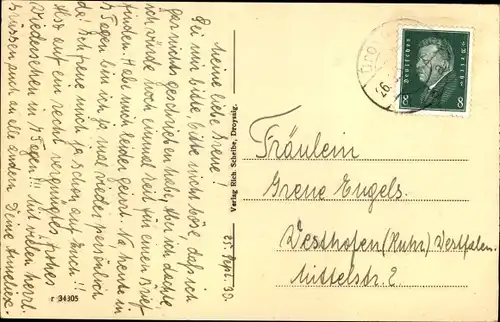 Meine liebe Irene!
Sei mir bitte, bitte nicht böse, daß ich
gar nichts geschrieben hab, aber ich dachte
ich würde noch einmal Zeit für einen Brief
finden. Hab mich leider geirrt. Na heute in
8 Tagen bin ich ja mal wieder persönlich
da! Ich freue mich ja schon auf Euch!!
Also auf ein recht vergnügtes, frohes
Wiedersehen in 8 Tagen!!! Mit vielen herzl.
Grüssen auch an alle andern Deine Anneliese.
25. Sept. 30.
r 34305
Verlag Rich. Scheibe, Droyssig.
26.
Deutsches Reich
8 8
Fräulein
Irene Engels.
Westhofen (Ruhr) Westfalen.
Mittelstr. 2